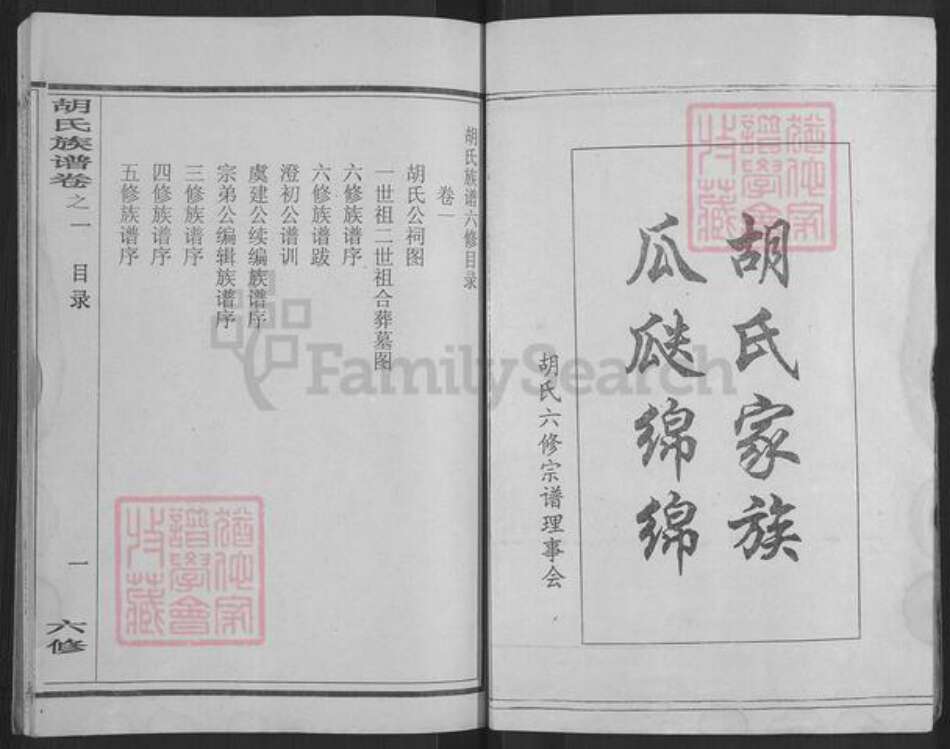 胡氏家族
瓜瓞绵绵
胡氏六修宗谱理事会
胡氏族谱六修目录
卷一
胡氏公祠图
一世祖二世祖合葬墓图
六修族谱序
六修族谱跋
澄初公谱训
虞建公续编族谱序
宗弟公编辑族谱序
三修族谱序
四修族谱序
五修族谱序
胡氏族谱卷之一 目录
一
六修
FamilySearch